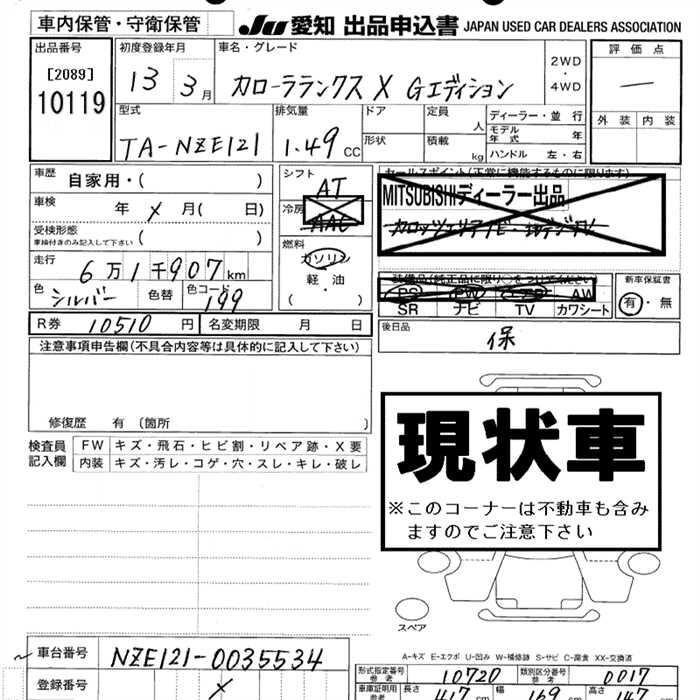 車内保管・守衛保管
JU 愛知 出品申込書 JAPAN USED CAR DEALERS ASSOCIATION
出品番号
[2089]
10119
初度登録年月
13 3月
車名・グレード
カローラランクス X Gエディション
2WD
・
4WD
評価点
—
外装 内装
型式
TA-NZE121
排気量
1.49 CC
ドア
形状
定員
人
積載
kg
ディーラー・並行
モデル年式 年
ハンドル 左・右
車歴 自家用・( )
車検 年 メ 月( 日)
受検形態
車検付きのみ記入して下さい ( )
走行 6万1千907km
色 シルバー 色替 色コード 199
シフト AT
冷房 AAC
燃料
ガソリン
軽油
( )
セールスポイント(正常に機能するものに限ります)
MITSUBISHIディーラー出品
装備品(純正品に限り○をつけてください)
PS PW AW
SR ナビ TV カワシート
新車保証書
有・無
R券 10510 円 名変期限 月 日
後日品
保
注意事項申告欄(不具合内容等は具体的に記入して下さい)
修復歴 有 (箇所 )
検査員記入欄
FW キズ・飛石・ヒビ割・リペア跡・X要
内装 キズ・汚レ・コゲ・穴・スレ・キレ・破レ
現状車
※このコーナーは不動車も含み
ますのでご注意下さい
スペア
A-キズ E-エクボ U-凹み W-補修跡 S-サビ C-腐食 XX-交換済
車台番号 NZE121-0035534
登録番号 メ
形式指定番号 参考 10720 類別区分番号 参考 0017
車庫証明用 参考 長さ 417 cm 幅 169 cm 高さ 147 cm